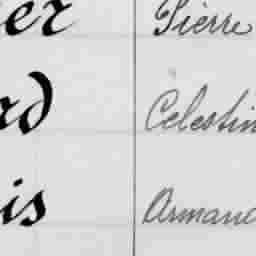 er Pierre
rd Celestin
is Armand